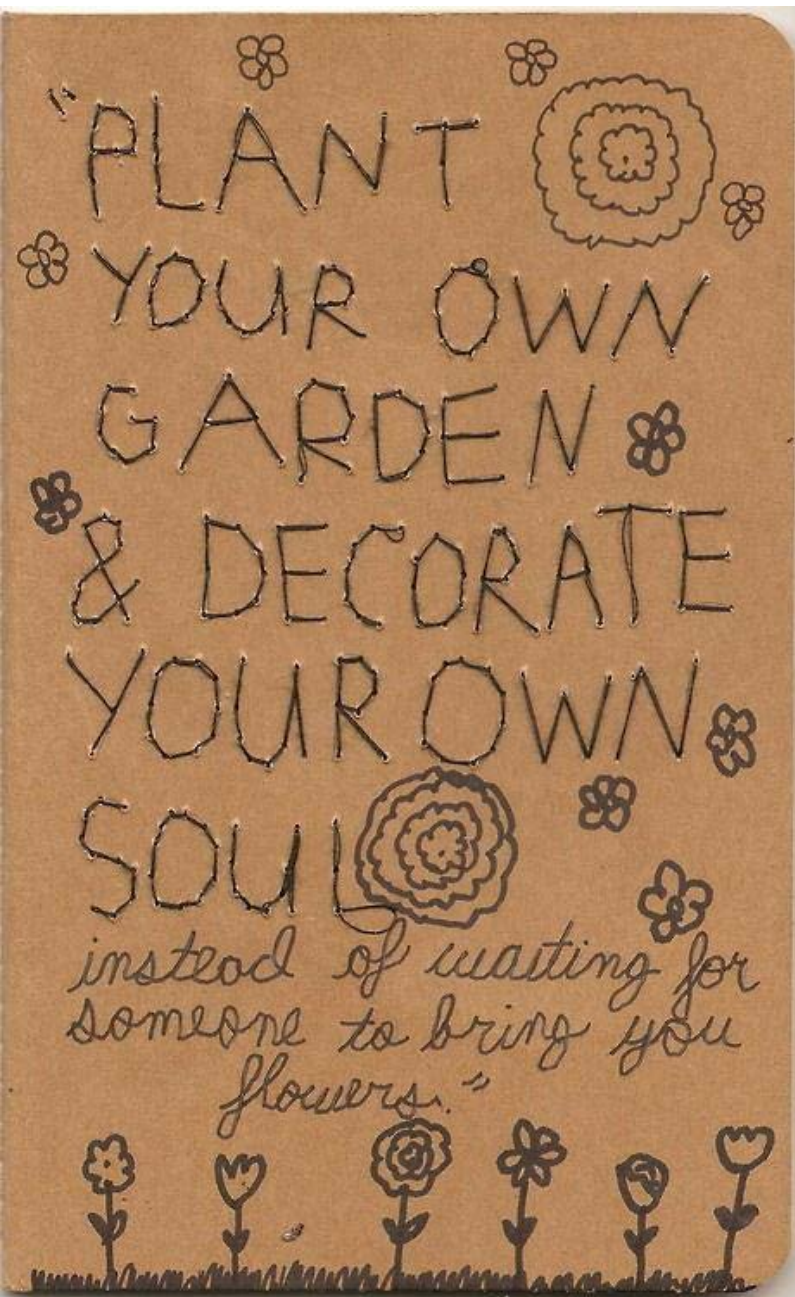 "PLANT
YOUR OWN
GARDEN
& DECORATE
YOUR OWN
SOUL
instead of waiting for
someone to bring you
flowers."